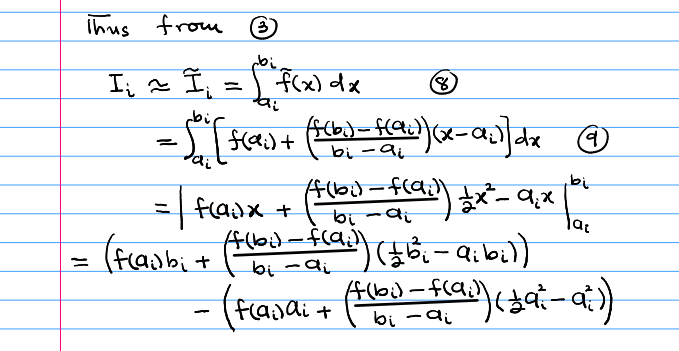 Thus from ③
I_i ≃ Ĩ_i = ∫_{a_i}^{b_i} f̃(x) dx ⑧
= ∫_{a_i}^{b_i} [ f(a_i) + ( (f(b_i) − f(a_i)) / (b_i − a_i) ) (x − a_i) ] dx ⑨
= | f(a_i)x + ( (f(b_i) − f(a_i)) / (b_i − a_i) ) ½x² − a_i x |_{a_i}^{b_i}
= ( f(a_i)b_i + ( (f(b_i) − f(a_i)) / (b_i − a_i) ) (½b_i² − a_i b_i) )
− ( f(a_i)a_i + ( (f(b_i) − f(a_i)) / (b_i − a_i) ) (½a_i² − a_i²) )